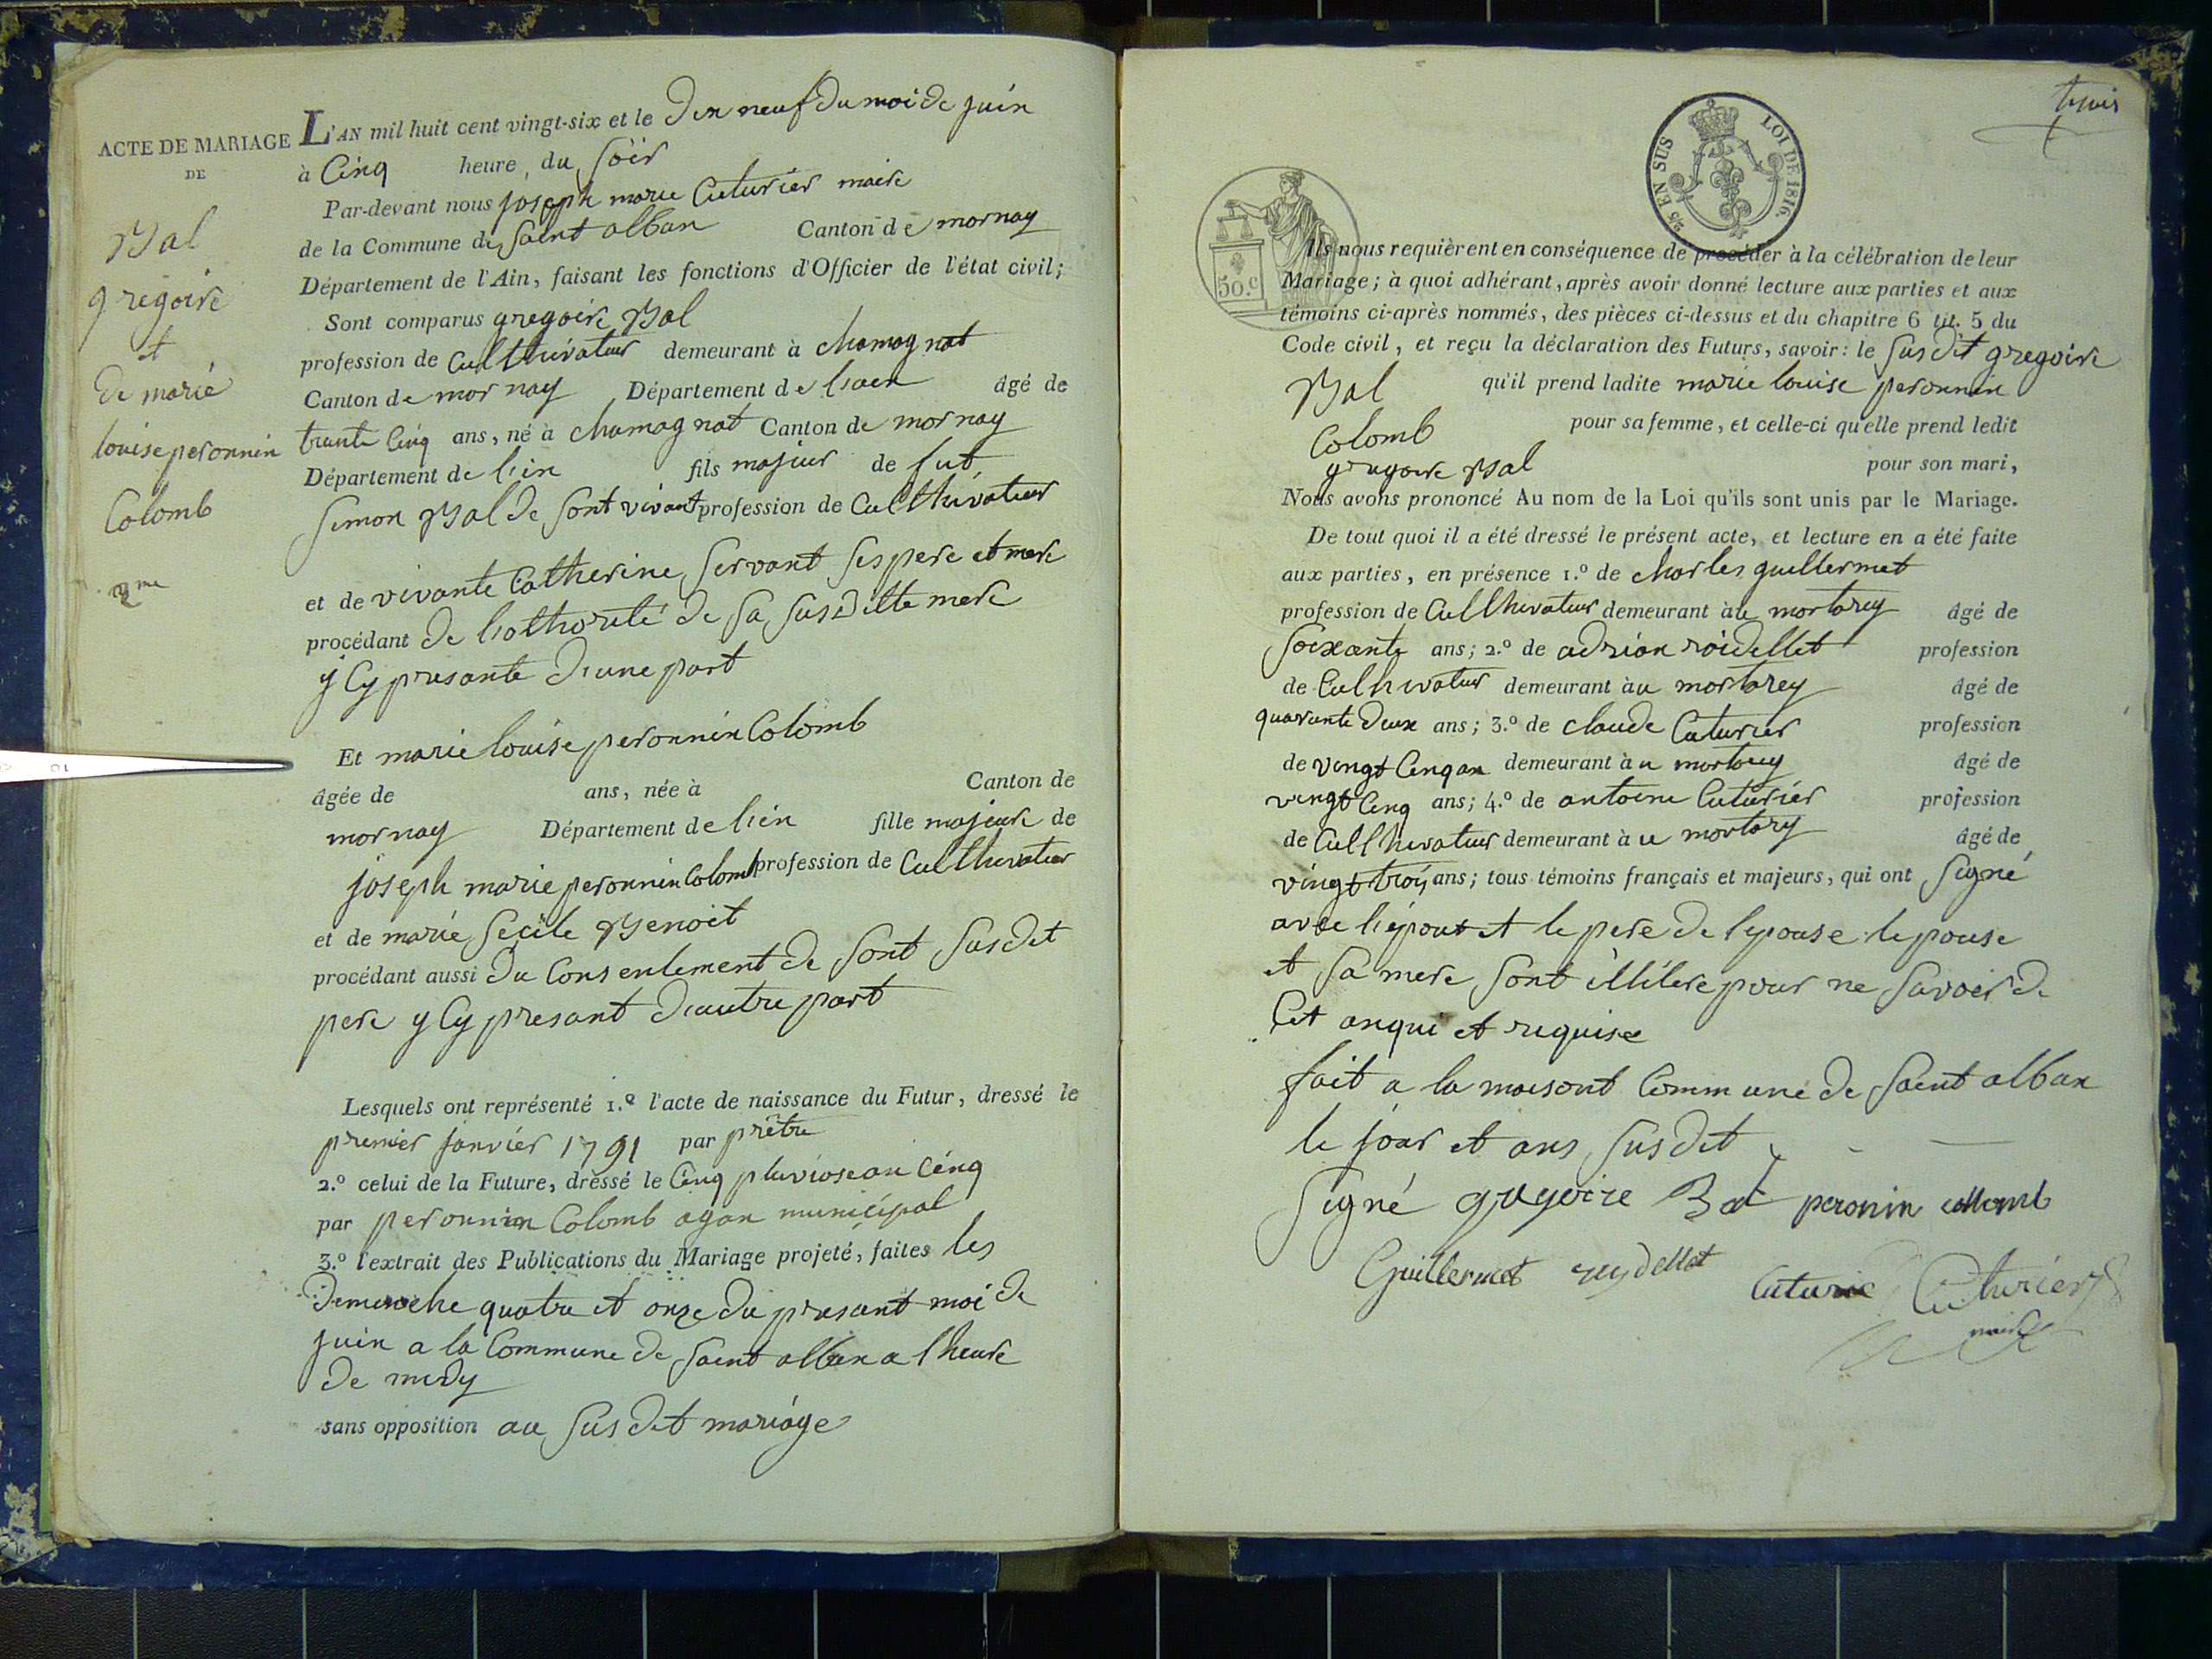 ACTE DE MARIAGE
DE
Bal
gregoire
et
de marie
louise peronnin
Colomb
2me
L'AN mil huit cent vingt-six et le dix neuf du moi de juin
à Cinq heure, du soir
Par-devant nous joseph marie Cuturier maire
de la Commune de saint alban Canton de mornay
Département de l'Ain, faisant les fonctions d'Officier de l'état civil;
Sont comparus gregoire Bal
profession de Culthivateur demeurant à chamagnat
Canton de mornay Département de liaen âgé de
trante Cinq ans, né à chamagnat Canton de mornay
Département de lien fils majeur de fut
simon Bal de sont vivant profession de Culthivateur
et de vivante Catherine servant ses pere et mere
procédant de liothorité de sa susditte mere
y Cy presante d'une part
Et marie louise peronnin Colomb
âgée de ans, née à Canton de
mornay Département de lien fille majeure de
joseph marie peronnin Colomb profession de Culthivateur
et de marie secile Benoit
procédant aussi du Consentement de sont susdit
pere y Cy presant d'autre part
Lesquels ont représenté 1.º l'acte de naissance du Futur, dressé le
premier janvier 1791 par prêtre
2.º celui de la Future, dressé le Cinq pluviose an Cinq
par peronnin Colomb agan municipal
3.º l'extrait des Publications du Mariage projeté, faites les
dimenche quatre et onze du presant moi de
juin a la Commune de saint alban a lheure
de midy
sans opposition au susdit mariage
50.C
2/5 EN SUS LOI DE 1816.
Ils nous requièrent en conséquence de procéder à la célébration de leur
Mariage; à quoi adhérant, après avoir donné lecture aux parties et aux
témoins ci-après nommés, des pièces ci-dessus et du chapitre 6 tit. 5 du
Code civil, et reçu la déclaration des Futurs, savoir: le susdit gregoire
Bal qu'il prend ladite marie louise peronnin
Colomb pour sa femme, et celle-ci qu'elle prend ledit
gregoire Bal pour son mari,
Nous avons prononcé Au nom de la Loi qu'ils sont unis par le Mariage.
De tout quoi il a été dressé le présent acte, et lecture en a été faite
aux parties, en présence 1.º de charles guillermet
profession de Culthivateur demeurant à u mortarey âgé de
soixante ans; 2.º de adrian roidellet profession
de Culhivateur demeurant à u mortarey âgé de
quarante deux ans; 3.º de claude Cuturier profession
de vingt Cinq an demeurant à u mortarey âgé de
vingt Cinq ans; 4.º de antoine Cuturier profession
de Culthivateur demeurant à u mortary âgé de
vingt trois ans; tous témoins français et majeurs, qui ont signé
avec liepout et le pere de lepouse lepouse
et sa mere sont illitere pour ne savoir de
Cet anqui et requise
fait a la maisont Commune de saint alban
le jour et ans susdit
signé gregoire Bal peronin collomb
Guillermet reydellet Cuturie Cuturier
maire